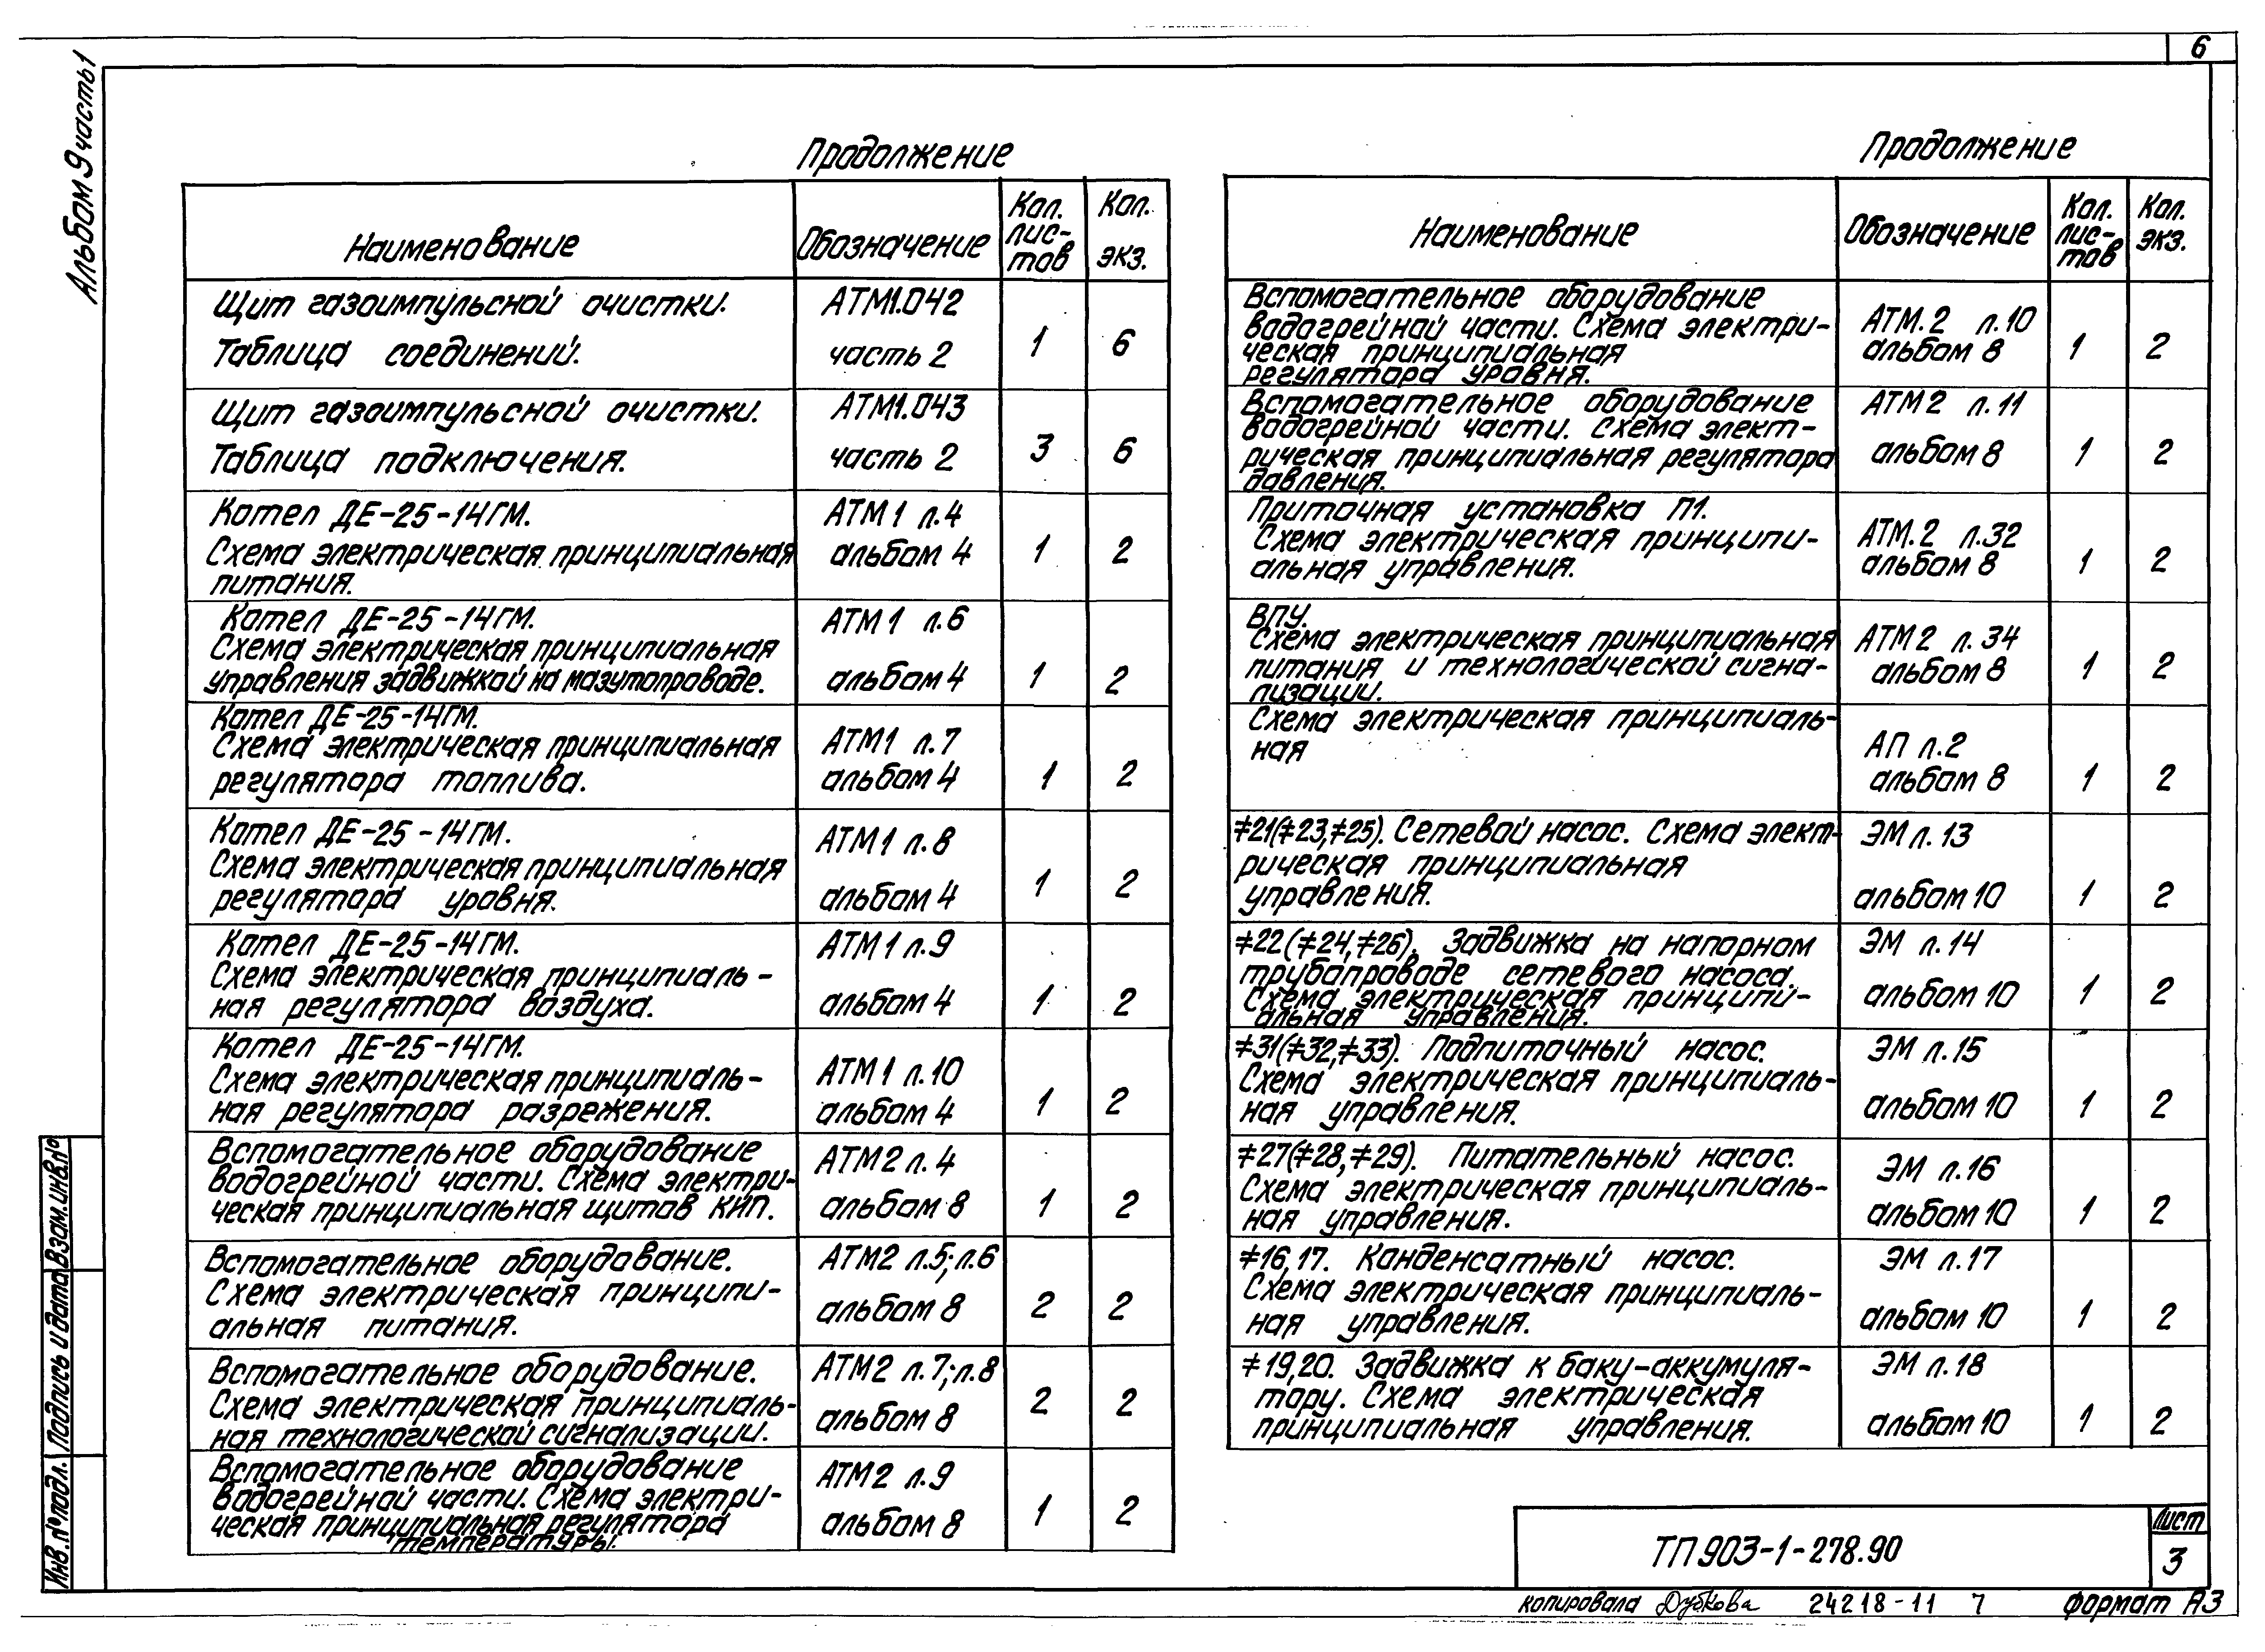 6
Альбом 9 часть 1
Продолжение
Наименование
Обозначение
Кол. лис-тов
Кол. экз.
Щит газоимпульсной очистки.
Таблица соединений.
АТМ1.042
часть 2
1
6
Щит газоимпульсной очистки.
Таблица подключения.
АТМ1.043
часть 2
3
6
Котел ДЕ-25-14ГМ.
Схема электрическая принципиальная
питания.
АТМ1 л.4
альбом 4
1
2
Котел ДЕ-25-14ГМ.
Схема электрическая принципиальная
управления задвижкой на мазутопроводе.
АТМ1 л.6
альбом 4
1
2
Котел ДЕ-25-14ГМ.
Схема электрическая принципиальная
регулятора топлива.
АТМ1 л.7
альбом 4
1
2
Котел ДЕ-25-14ГМ.
Схема электрическая принципиальная
регулятора уровня.
АТМ1 л.8
альбом 4
1
2
Котел ДЕ-25-14ГМ.
Схема электрическая принципиаль-
ная регулятора воздуха.
АТМ1 л.9
альбом 4
1
2
Котел ДЕ-25-14ГМ.
Схема электрическая принципиаль-
ная регулятора разрежения.
АТМ1 л.10
альбом 4
1
2
Вспомогательное оборудование
водогрейной части. Схема электри-
ческая принципиальная щитов КИП.
АТМ2 л.4
альбом 8
1
2
Вспомогательное оборудование.
Схема электрическая принципи-
альная питания.
АТМ2 л.5; л.6
альбом 8
2
2
Вспомогательное оборудование.
Схема электрическая принципиаль-
ная технологической сигнализации.
АТМ2 л.7; л.8
альбом 8
2
2
Вспомогательное оборудование
водогрейной части. Схема электри-
ческая принципиальная регулятора
температуры.
АТМ2 л.9
альбом 8
1
2
Продолжение
Наименование
Обозначение
Кол. лис-тов
Кол. экз.
Вспомогательное оборудование
водогрейной части. Схема электри-
ческая принципиальная
регулятора уровня.
АТМ.2 л.10
альбом 8
1
2
Вспомогательное оборудование
водогрейной части. Схема элект-
рическая принципиальная регулятора
давления.
АТМ2 л.11
альбом 8
1
2
Приточная установка П1.
Схема электрическая принципи-
альная управления.
АТМ.2 л.32
альбом 8
1
2
ВПУ.
Схема электрическая принципиальная
питания и технологической сигна-
лизации.
АТМ2 л.34
альбом 8
1
2
Схема электрическая принципиаль-
ная
АП л.2
альбом 8
1
2
≠21(≠23,≠25). Сетевой насос. Схема элект-
рическая принципиальная
управления.
ЭМ л.13
альбом 10
1
2
≠22(≠24,≠26). Задвижка на напорном
трубопроводе сетевого насоса.
Схема электрическая принципи-
альная управления.
ЭМ л.14
альбом 10
1
2
≠31(≠32,≠33). Подпиточный насос.
Схема электрическая принципиаль-
ная управления.
ЭМ л.15
альбом 10
1
2
≠27(≠28,≠29). Питательный насос.
Схема электрическая принципиаль-
ная управления.
ЭМ л.16
альбом 10
1
2
≠16,17. Конденсатный насос.
Схема электрическая принципиаль-
ная управления.
ЭМ л.17
альбом 10
1
2
≠19,20. Задвижка к баку-аккумуля-
тору. Схема электрическая
принципиальная управления.
ЭМ л.18
альбом 10
1
2
Инв.№подл. Подпись и дата Взам.инв.№
ТП 903-1-278.90
Лист
3
копировала Дубкова 24218-11 7 формат А3